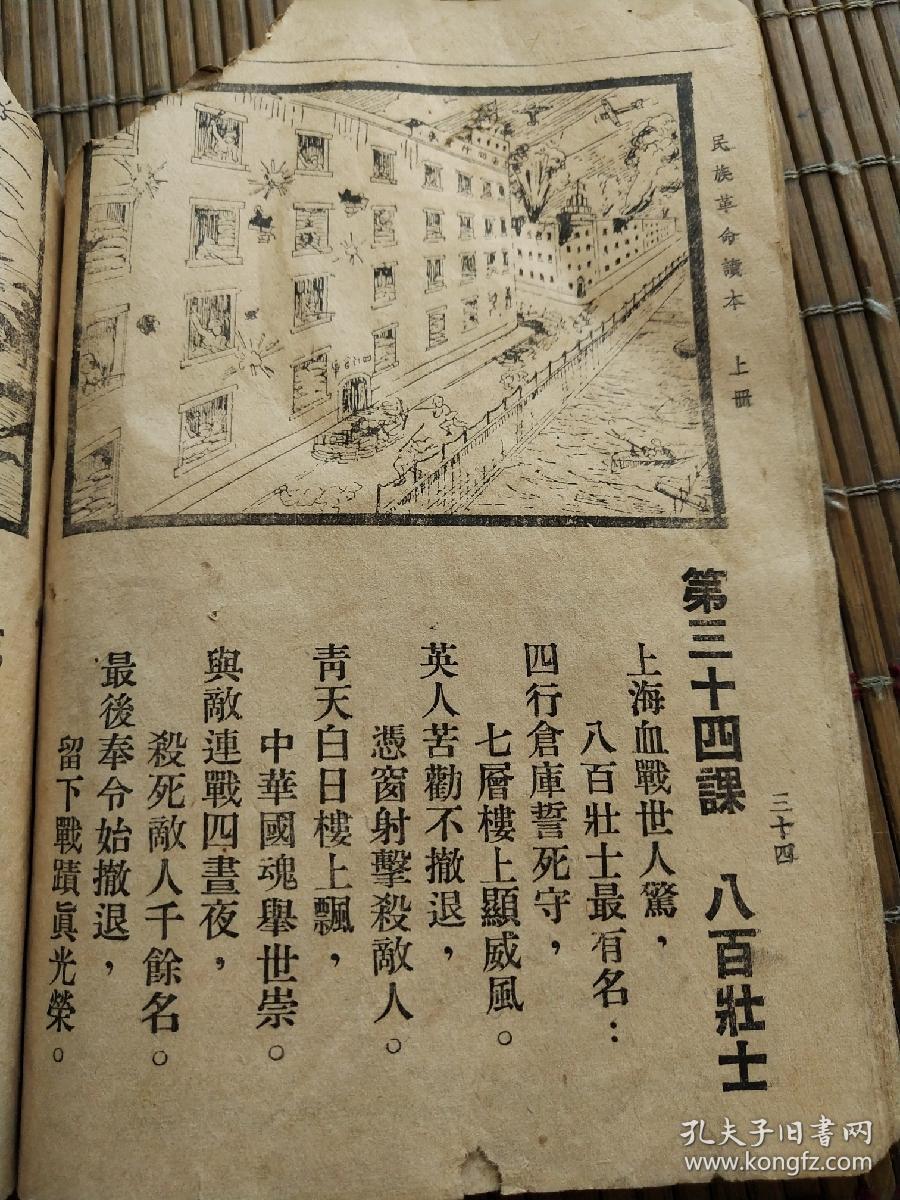 民族革命讀本 上冊
三十四
第三十四課 八百壯士
上海血戰世人驚，
八百壯士最有名：
四行倉庫誓死守，
七層樓上顯威風。
英人苦勸不撤退，
憑窗射擊殺敵人。
靑天白日樓上飄，
中華國魂舉世崇。
與敵連戰四晝夜，
殺死敵人千餘名。
最後奉令始撤退，
留下戰蹟眞光榮。
孔夫子旧书网
www.kongfz.com